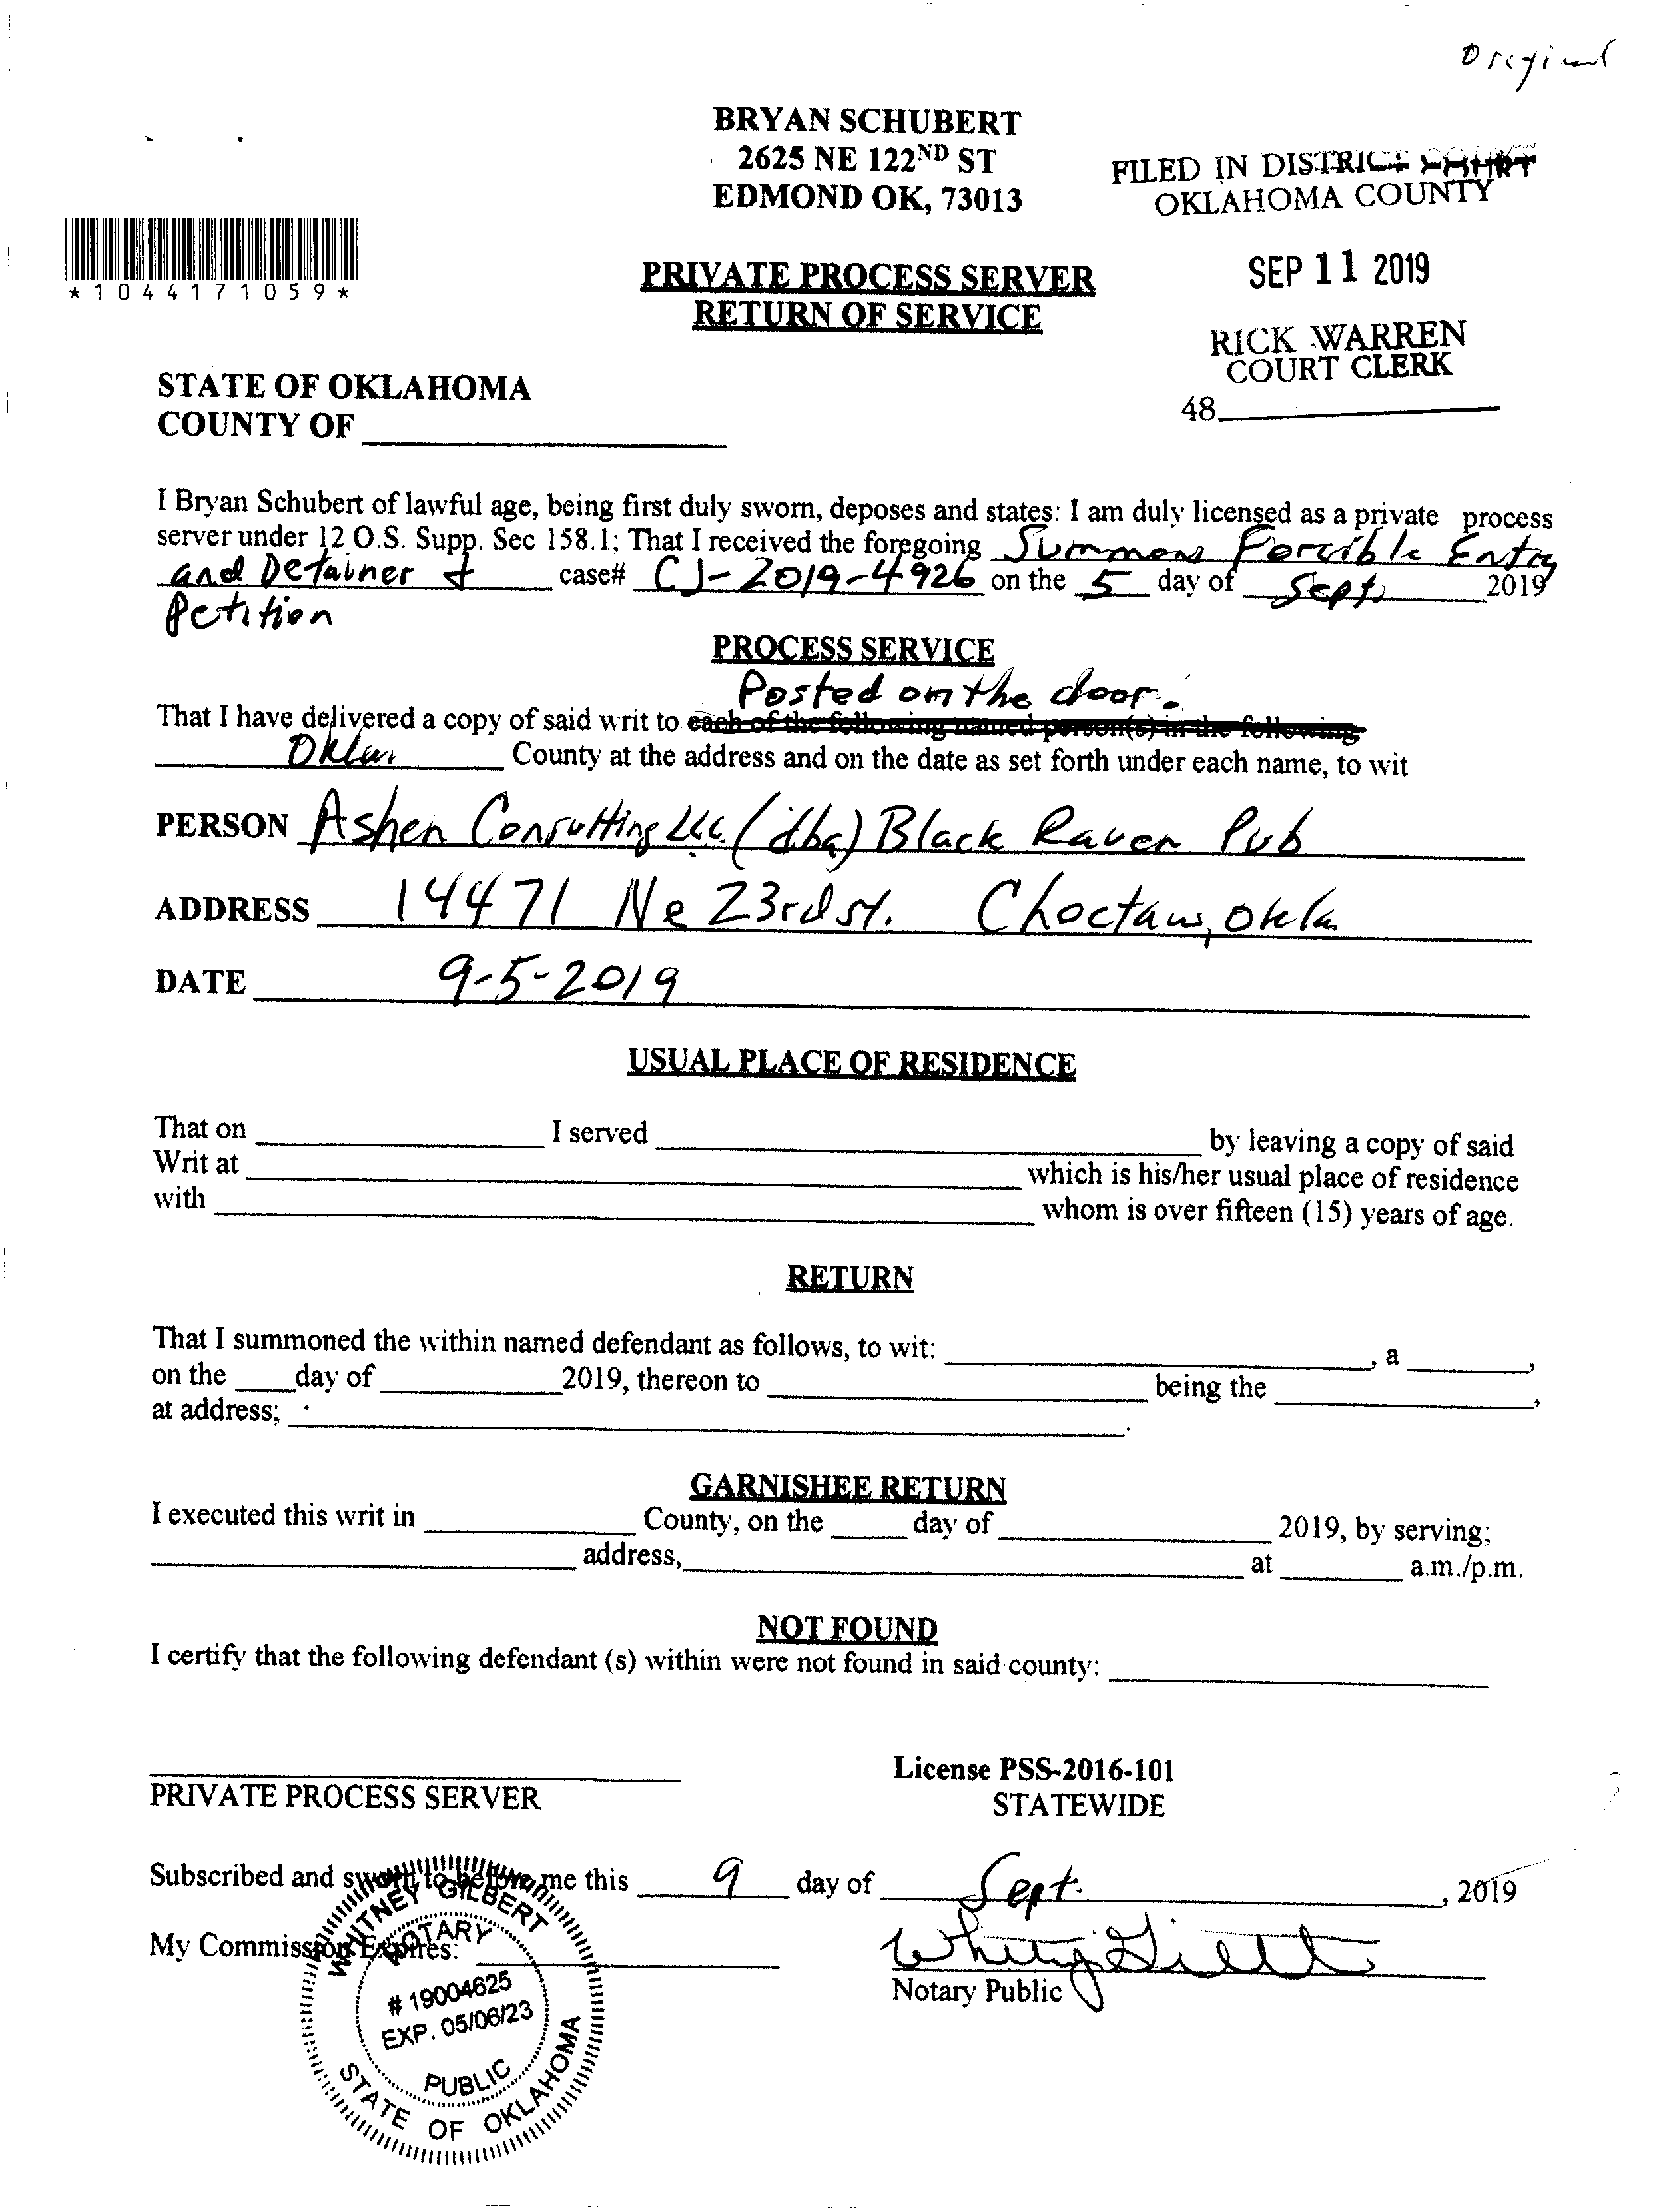 Original
BRYAN SCHUBERT
2625 NE 122ND ST
EDMOND OK, 73013
FILED IN DISTRICT COURT
OKLAHOMA COUNTY
*1044171059*
PRIVATE PROCESS SERVER
RETURN OF SERVICE
SEP 11 2019
RICK WARREN
COURT CLERK
48
STATE OF OKLAHOMA
COUNTY OF
I Bryan Schubert of lawful age, being first duly sworn, deposes and states: I am duly licensed as a private process
server under 12 O.S. Supp. Sec 158.1; That I received the foregoing Summons Forcible Entry
and Detainer & case# CJ-2019-4926 on the 5 day of Sept. 2019
Petition
PROCESS SERVICE
Posted on the door.
That I have delivered a copy of said writ to each of the following named person(s) in the following
Okla. County at the address and on the date as set forth under each name, to wit
PERSON Ashen Consulting LLC. (dba) Black Raven Pub
ADDRESS 14471 Ne 23rd st. Choctaw, Okla.
DATE 9-5-2019
USUAL PLACE OF RESIDENCE
That on I served by leaving a copy of said
Writ at which is his/her usual place of residence
with whom is over fifteen (15) years of age.
RETURN
That I summoned the within named defendant as follows, to wit: , a ,
on the day of 2019, thereon to being the ,
at address; .
GARNISHEE RETURN
I executed this writ in County, on the day of 2019, by serving;
address, at a.m./p.m.
NOT FOUND
I certify that the following defendant (s) within were not found in said county:
License PSS-2016-101
PRIVATE PROCESS SERVER
STATEWIDE
Subscribed and sworn to before me this 9 day of Sept. , 2019
My Commission Expires:
Whitney Gilbert
Notary Public
WHITNEY GILBERT
NOTARY
# 19004625
EXP. 05/06/23
PUBLIC
STATE OF OKLAHOMA